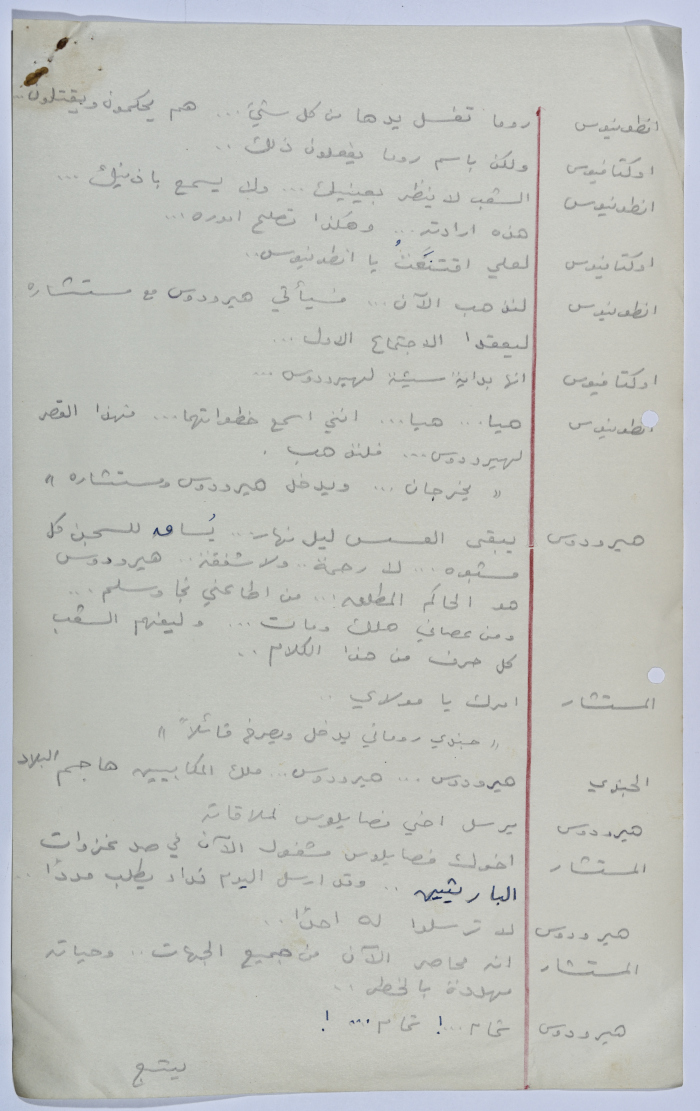 انطونيوس روما تغسل يدها من كل شيء... هم يحكمون ويقتلون...
اوكتافيوس ولكن باسم روما يفعلون ذلك ...
انطونيوس الشعب لا ينظر بعينيك ... ولا يسمع باذنيك ...
هذه ارادته... وهكذا تصلح اموره...
اوكتافيوس لعلي اقتنعتُ يا انطونيوس..
انطونيوس لنذهب الآن ... فسيأتي هيرودوس مع مستشاره
ليعقدا الاجتماع الاول ...
اوكتافيوس انها بداية سيئة لهيرودوس ...
انطونيوس هيا... هيا... انني اسمع خطواتهما... فهذا القصر
لهيرودوس... فلنذهب .
" يخرجان ... ويدخل هيرودوس ومستشاره "
هيرودوس يبقى العسس ليل نهار... يُساق للسجن كل
مشبوه... لا رحمة.. ولا شفقة.. هيرودوس
هو الحاكم المطلق!... من اطاعني نجا وسلم...
ومن عصاني هلك ومات ... وليفهم الشعب
كل حرف من هذا الكلام ..
المستشار امرك يا مولاي ..
" جندي روماني يدخل ويصرخ قائلاً "
الجندي هيرودوس ... هيرودوس.. ملك المكابيين هاجم البلاد
هيرودوس يرسل اخي فصايلوس لملاقاته
المستشار اخوك فصايلوس مشغول الآن في صد غزوات
البارثيين .. وقد ارسل اليوم يطلب مددًا ..
هيرودوس لا ترسلوا له احدًا..
المستشار انه محاصر الآن من جميع الجهات .. وحياته
مهددة بالخطر ..
هيرودوس تمام...! تمام...!
يتبع